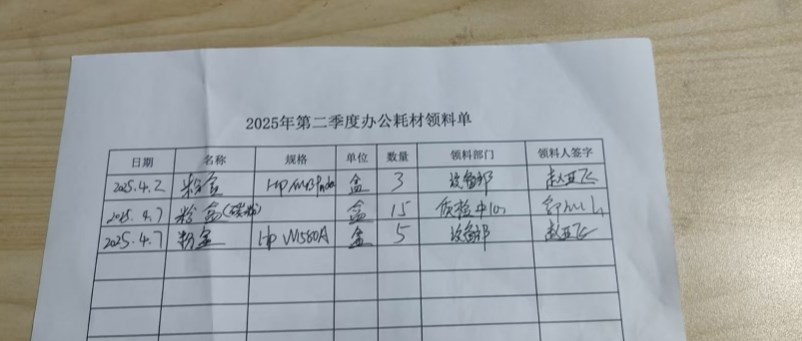 2025年第二季度办公耗材领料单
日期 名称 规格 单位 数量 领料部门 领料人签字
2025.4.2 粉盒 HP 盒 3 设备部 赵亚飞
2025.4.7 粉盒(碳粉) 盒 15 质检中心
2025.4.7 粉盒 HP W1580A 盒 5 设备部 赵亚飞